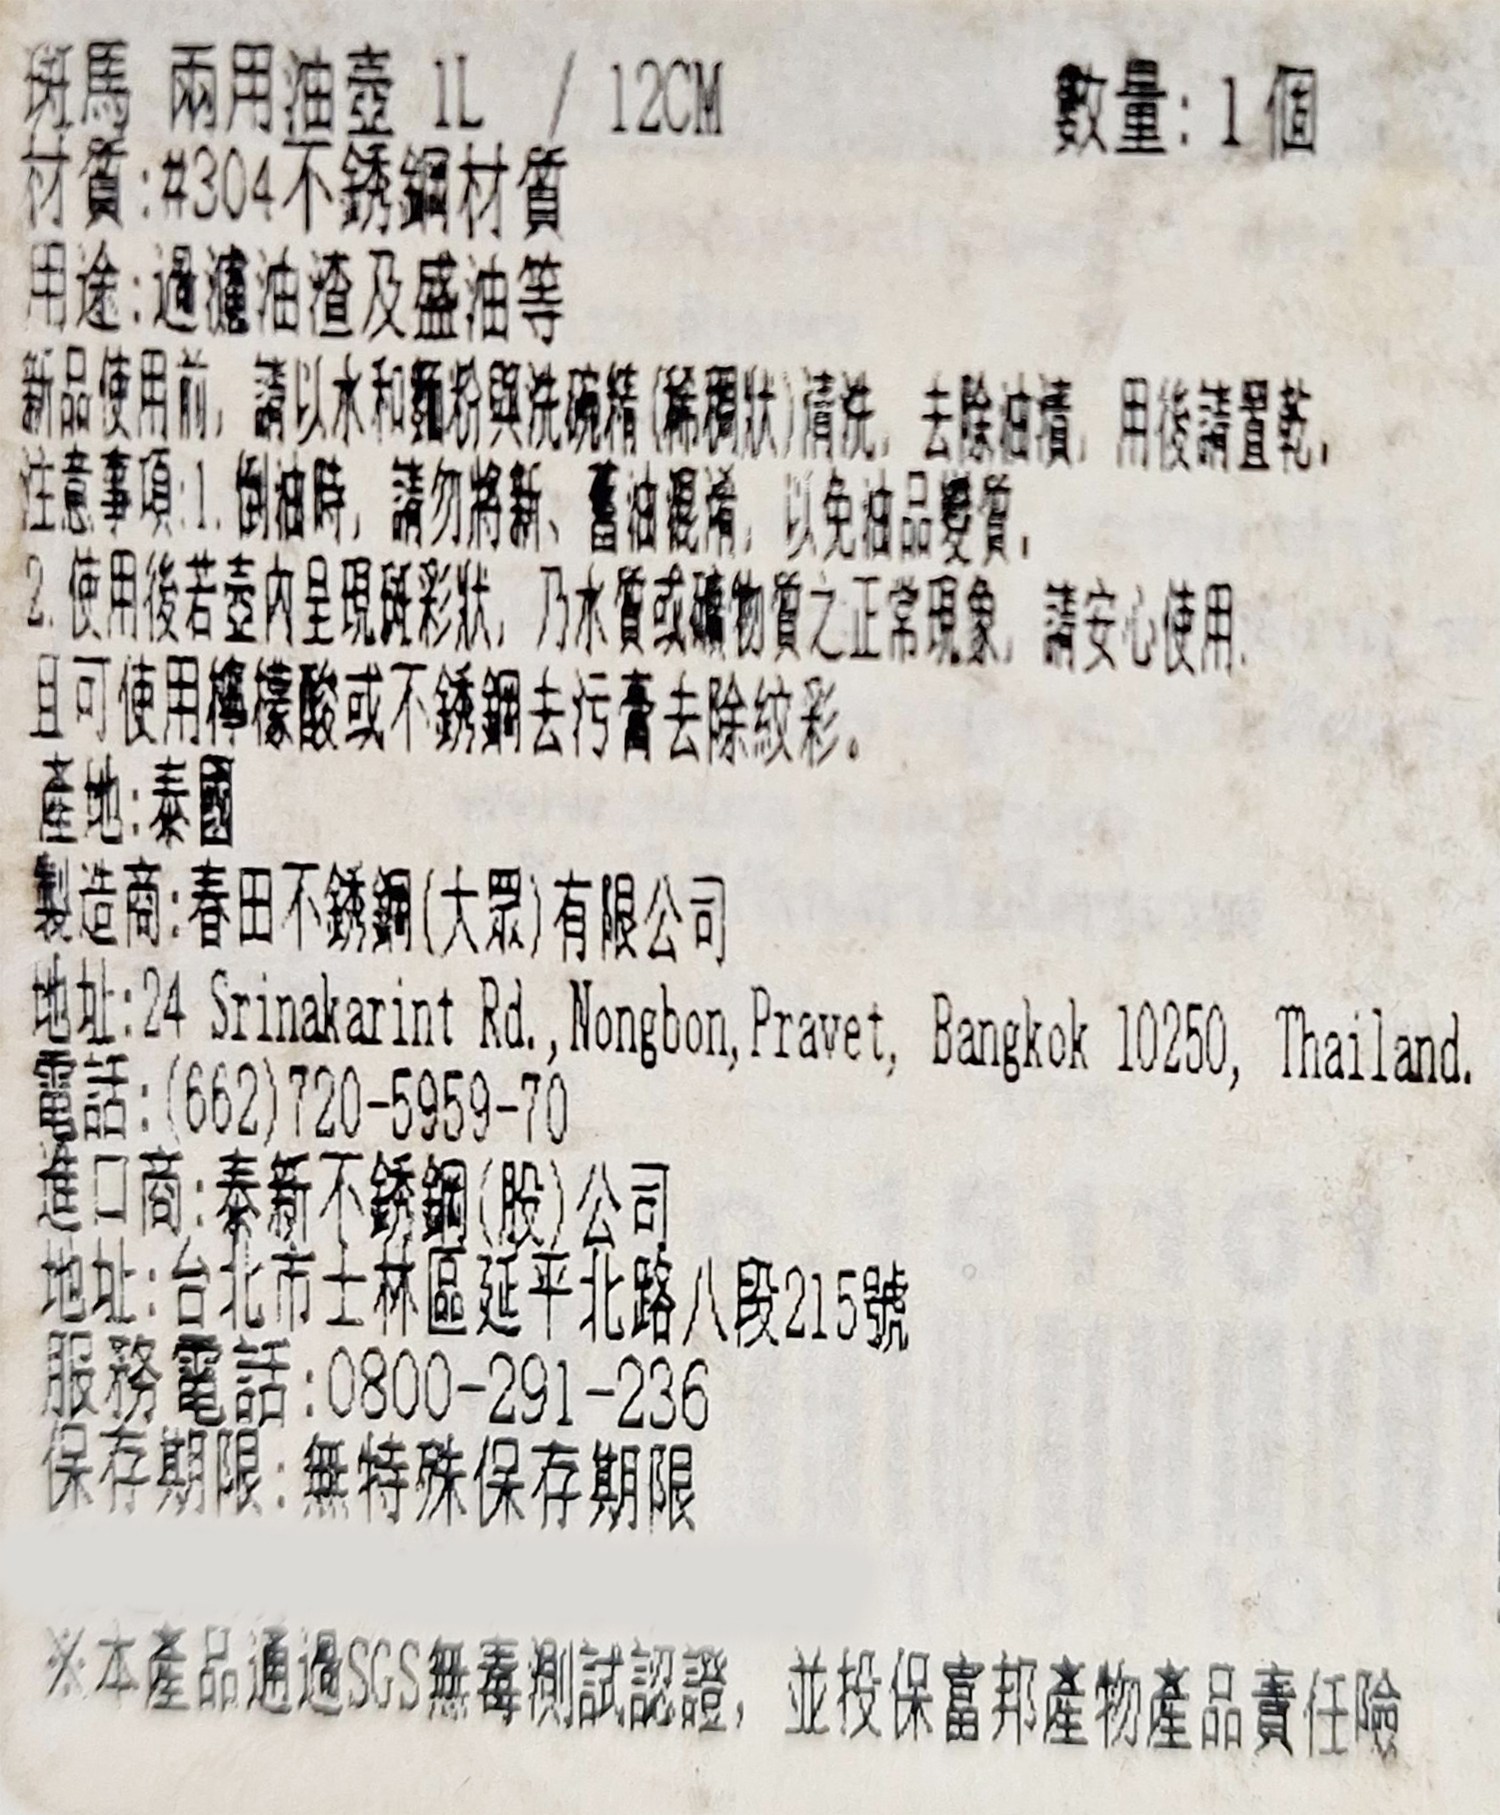 斑馬 兩用油壺 1L / 12CM 數量: 1 個
材質:#304不銹鋼材質
用途:過濾油渣及盛油等
新品使用前, 請以水和麵粉與洗碗精(稀稠狀)清洗, 去除油漬, 用後請置乾.
注意事項:1. 倒油時, 請勿將新、舊油混淆, 以免油品變質.
2. 使用後若壺內呈現斑彩狀, 乃水質或礦物質之正常現象, 請安心使用.
且可使用檸檬酸或不銹鋼去污膏去除紋彩。
產地:泰國
製造商:春田不銹鋼(大眾)有限公司
地址:24 Srinakarint Rd.,Nongbon,Pravet, Bangkok 10250, Thailand.
電話:(662)720-5959-70
進口商:泰新不銹鋼(股)公司
地址:台北市士林區延平北路八段215號
服務電話:0800-291-236
保存期限:無特殊保存期限
※本產品通過SGS無毒測試認證, 並投保富邦產物產品責任險